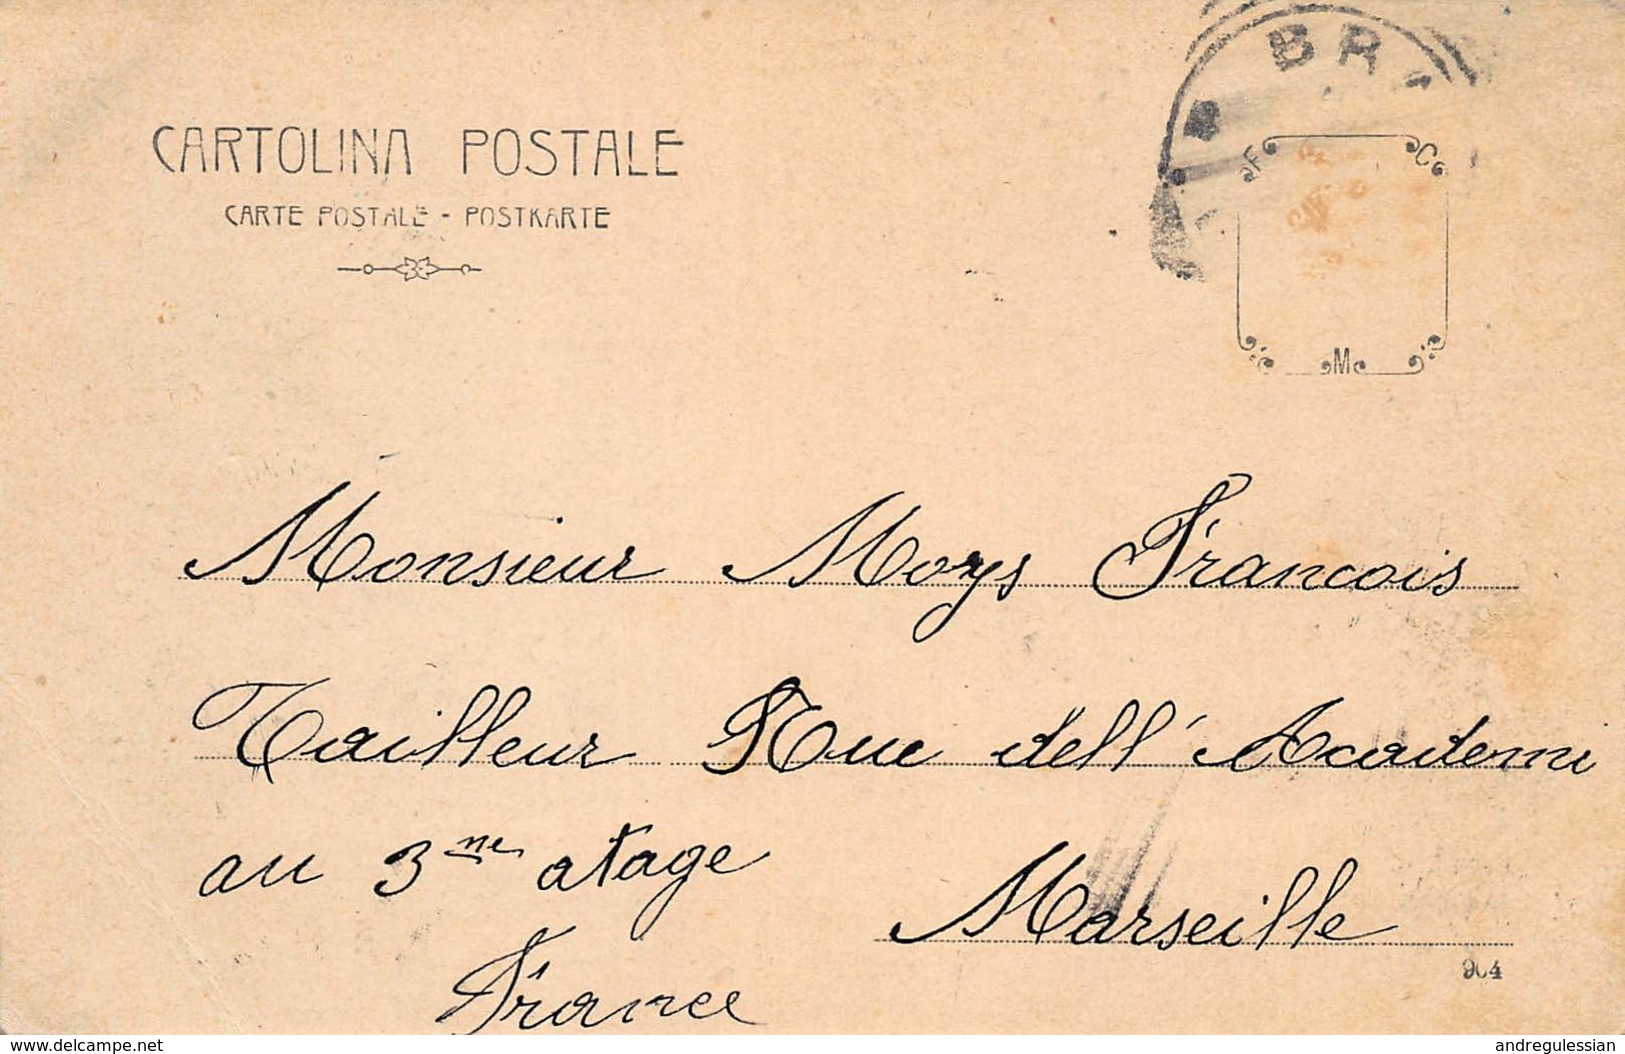 BR
CARTOLINA POSTALE
CARTE POSTALE - POSTKARTE
F C
M
Monsieur Moys Francois
Tailleur Rue dell' Academi
au 3me atage
Marseille
904
France
delcampe.net
andregulessian